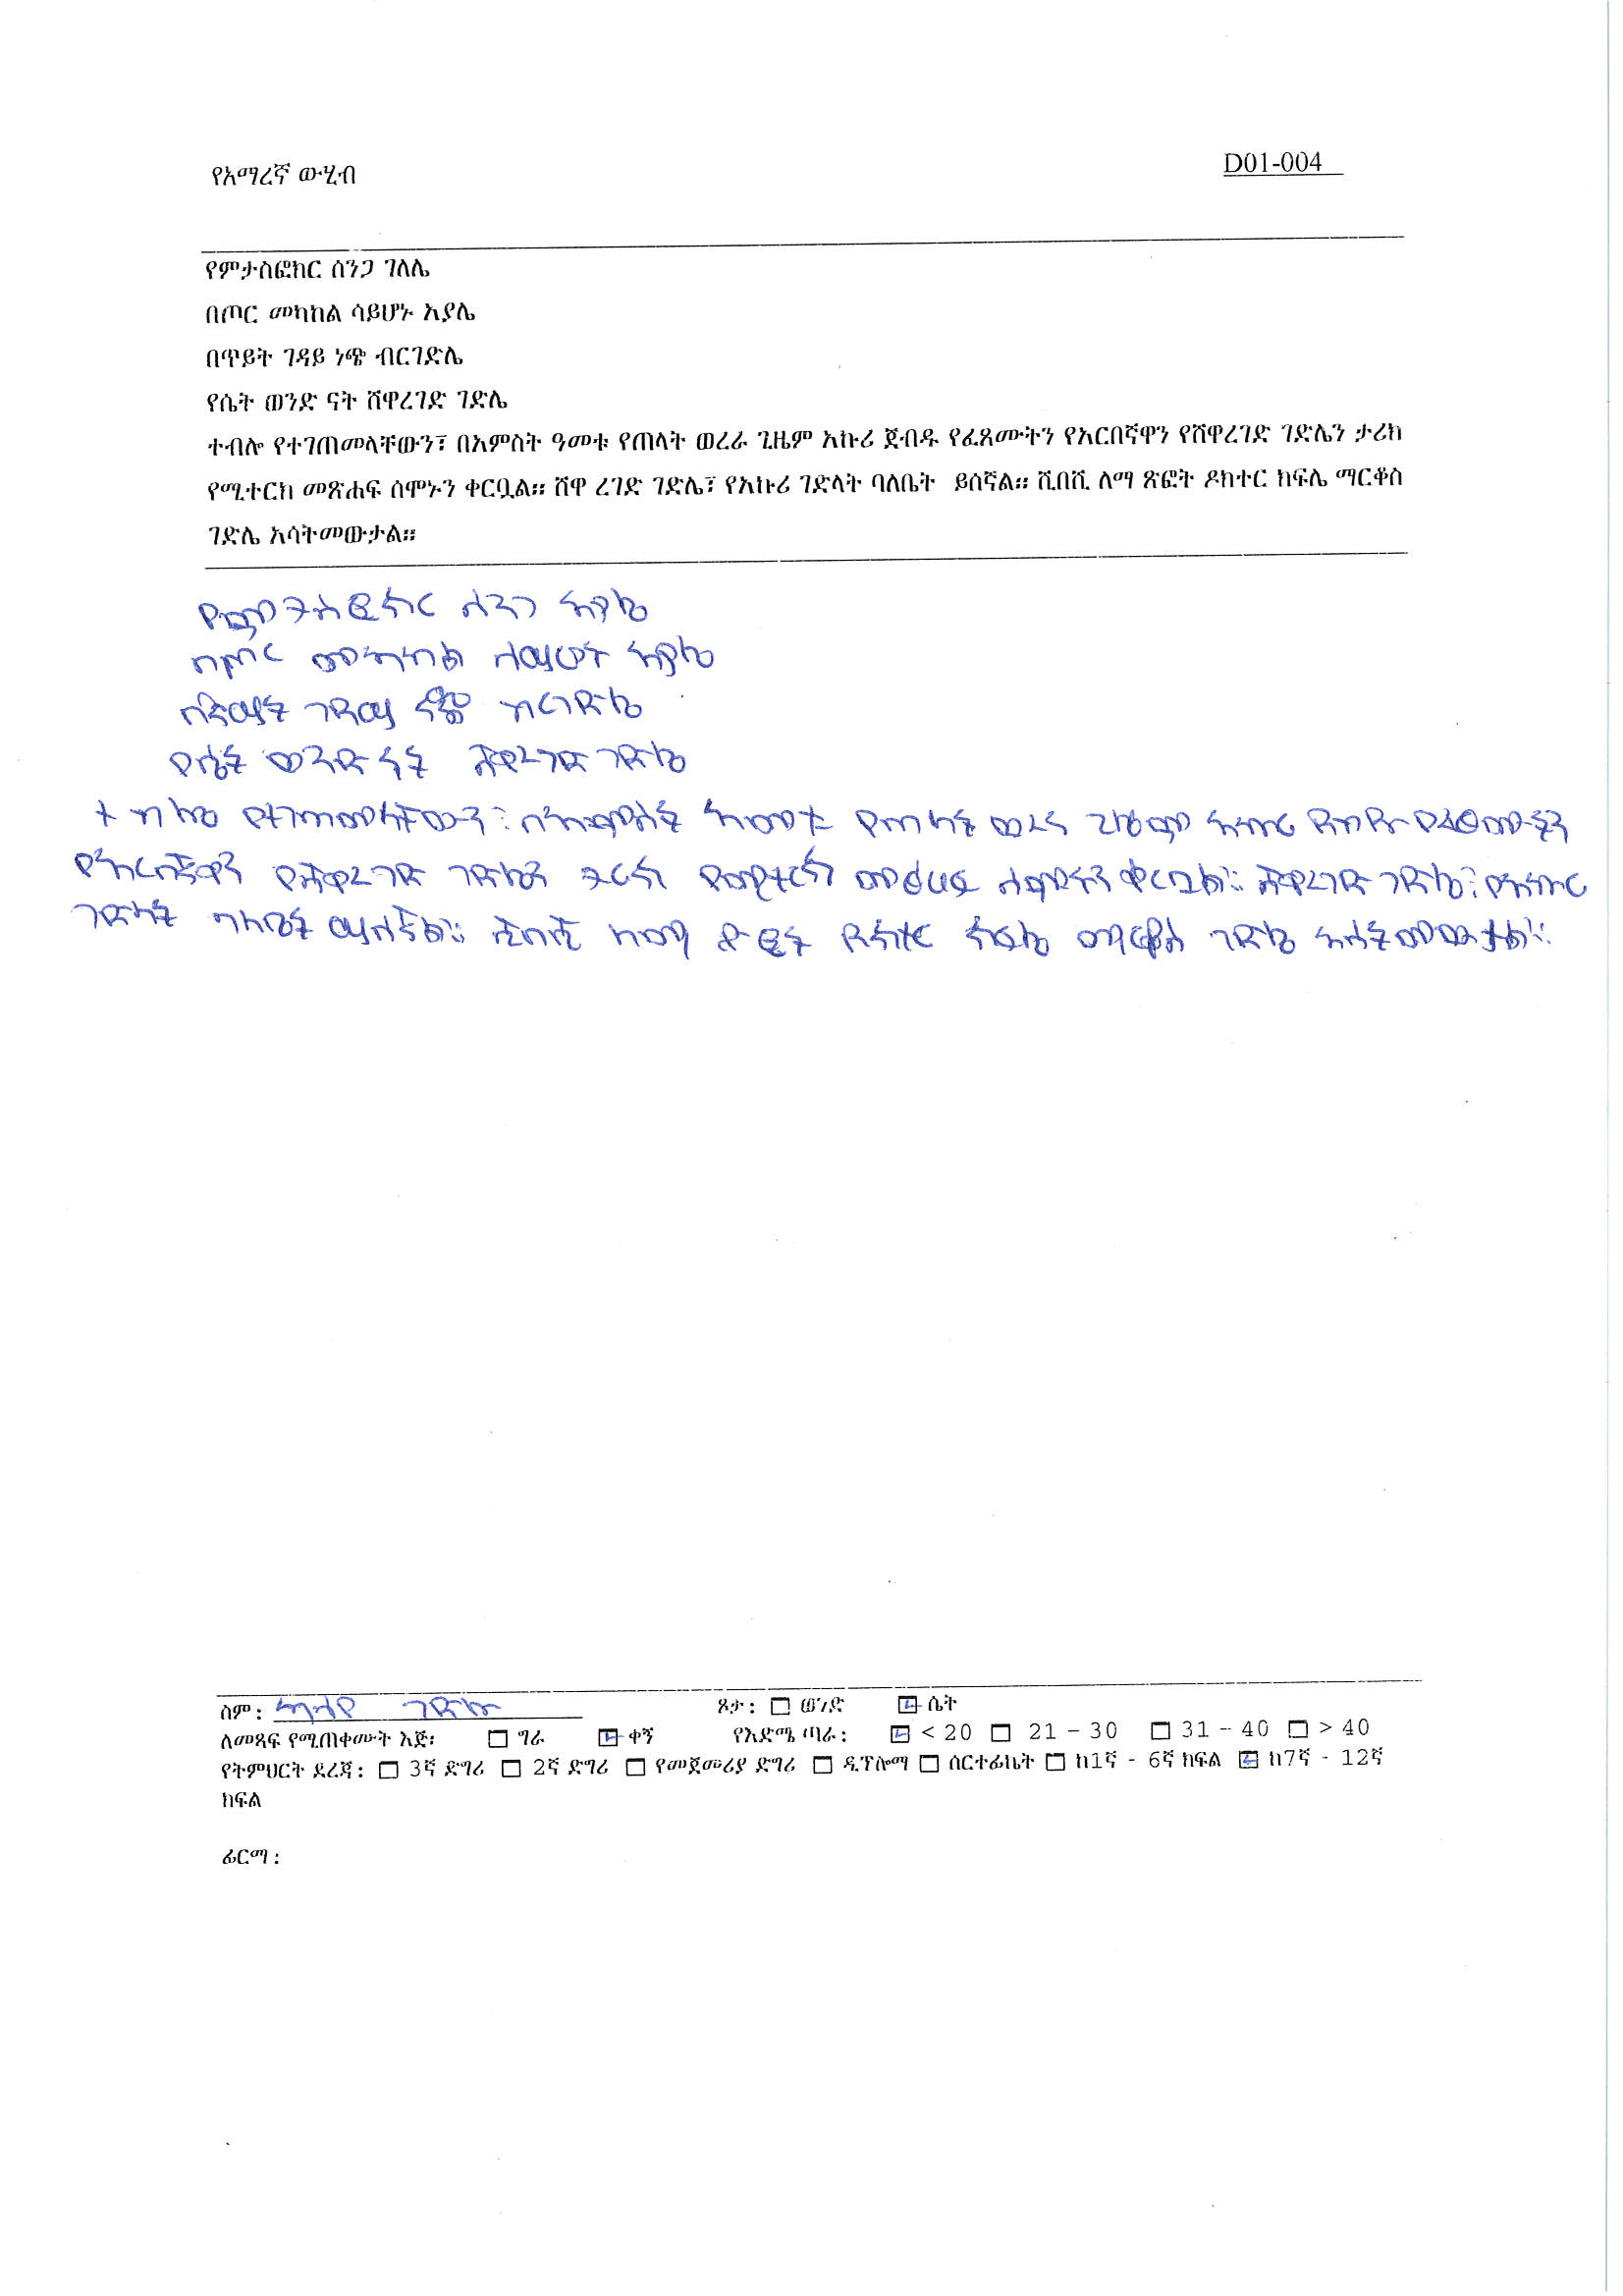 የአማረኛ ውሂብ
D01-004
የምታስፎክር ሰንጋ ገለሌ
በጦር መካከል ሳይሆኑ አያሌ
በጥይት ገዳይ ነጭ ብርገድሌ
የሴት ወንድ ናት ሸዋረገድ ገድሌ
ተብሎ የተገጠመላቸውን፣ በአምስት ዓመቱ የጠላት ወረራ ጊዜም አኩሪ ጀብዱ የፈጸሙትን የአርበኛዋን የሸዋረገድ ገድሌን ታሪክ
የሚተርክ መጽሐፍ ሰሞኑን ቀርቧል። ሸዋ ረገድ ገድሌ፣ የአኩሪ ገድላት ባለቤት ይሰኛል። ሺበሺ ለማ ጽፎት ዶክተር ክፍሌ ማርቆስ
ገድሌ አሳትመውታል።
የምታስፎክር ሰንጋ አያሌ
በጦር መካከል ሳይሆኑ አያሌ
በጥይት ገዳይ ነጭ ብርገድሌ
የሴት ወንድ ናት ሸዋረገድ ገድሌ
ተብሎ የተገጠመላቸውን፣ በአምስት አመቱ የጠላት ወረራ ጊዜም አኩሪ ጀብዱ የፈፀሙትን
የአርበኛዋን የሸዋረገድ ገድሌን ታሪክ የሚተርክ መፅሀፍ ሰሞኑን ቀርቧል። ሸዋረገድ ገድሌ፣ የአኩሪ
ገድላት ባለቤት ይሰኛል። ሺበሺ ለማ ፅፎት ዶክተር ክፍሌ ማርቆስ ገድሌ አሳትመውታል።
ስም: ገድሉ ጾታ: ወንድ ሴት
ለመጻፍ የሚጠቀሙት እጅ፡ ግራ ቀኝ የእድሜ ጣራ: < 20 21 - 30 31 - 40 > 40
የትምህርት ደረጃ: 3ኛ ድግሪ 2ኛ ድግሪ የመጀመሪያ ድግሪ ዲፕሎማ ሰርተፊኬት ከ1ኛ - 6ኛ ክፍል ከ7ኛ - 12ኛ
ክፍል
ፊርማ: